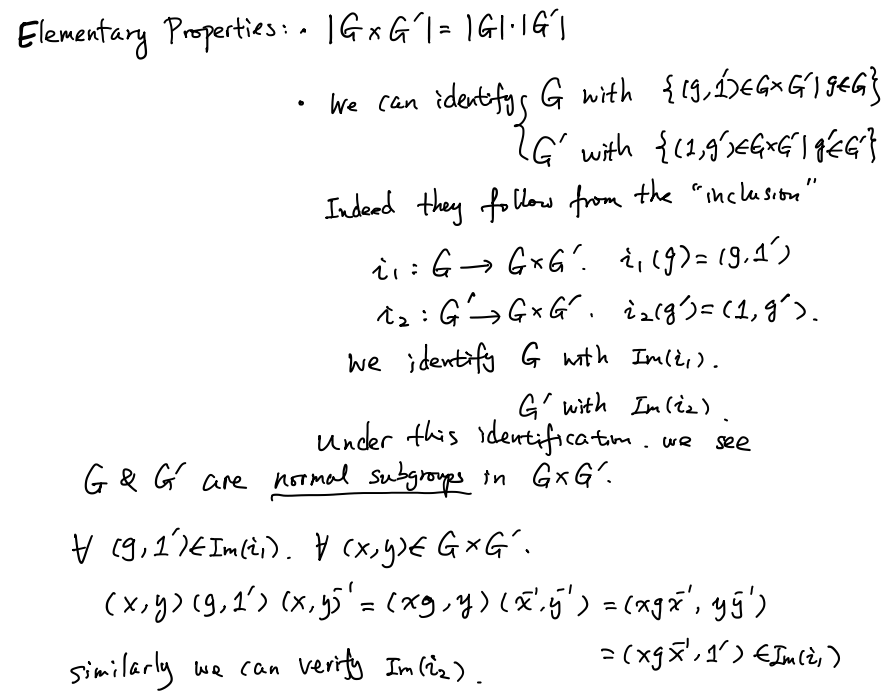 Elementary Properties: • |G × G′| = |G|·|G′|
• We can identify { G with {(g,1′)∈G×G′ | g∈G}
G′ with {(1,g′)∈G×G′ | g′∈G′}
Indeed they follow from the "inclusion"
i₁ : G → G×G′. i₁(g) = (g,1′)
i₂ : G′ → G×G′. i₂(g′) = (1,g′).
We identify G with Im(i₁).
G′ with Im(i₂).
Under this identification. we see
G & G′ are normal subgroups in G×G′.
∀ (g,1′)∈Im(i₁). ∀ (x,y)∈ G×G′.
(x,y)(g,1′)(x,y)⁻¹ = (xg,y)(x⁻¹,y⁻¹) = (xgx⁻¹, yy⁻¹)
= (xgx⁻¹,1′) ∈Im(i₁)
similarly we can verify Im(i₂).